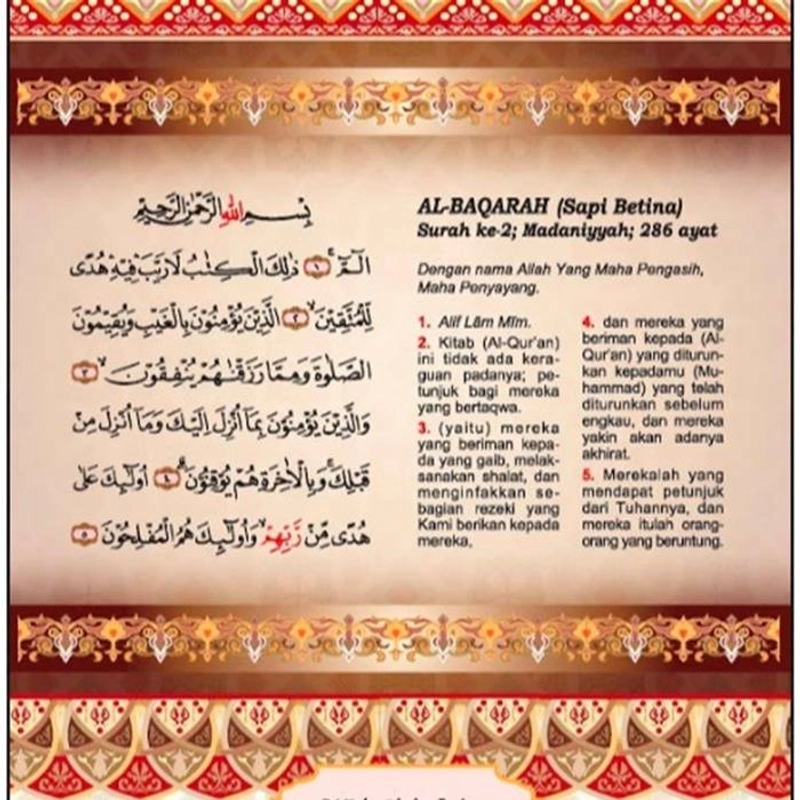 بِسْمِ اللّٰهِ الرَّحْمٰنِ الرَّحِيْمِ
الۤمّۤ ۚ ١ ذٰلِكَ الْكِتٰبُ لَا رَيْبَ ۛ فِيْهِ ۛ هُدًى
لِّلْمُتَّقِيْنَۙ ٢ الَّذِيْنَ يُؤْمِنُوْنَ بِالْغَيْبِ وَيُقِيْمُوْنَ
الصَّلٰوةَ وَمِمَّا رَزَقْنٰهُمْ يُنْفِقُوْنَۙ ٣
وَالَّذِيْنَ يُؤْمِنُوْنَ بِمَآ اُنْزِلَ اِلَيْكَ وَمَآ اُنْزِلَ مِنْ
قَبْلِكَۚ وَبِالْاٰخِرَةِ هُمْ يُوْقِنُوْنَۗ ٤ اُولٰۤىِٕكَ عَلٰى
هُدًى مِّنْ رَّبِّهِمْۙ وَاُولٰۤىِٕكَ هُمُ الْمُفْلِحُوْنَ ٥
AL-BAQARAH (Sapi Betina)
Surah ke-2; Madaniyyah; 286 ayat
Dengan nama Allah Yang Maha Pengasih,
Maha Penyayang.
1. Alif Lām Mīm.
2. Kitab (Al-Qur'an)
ini tidak ada kera-
guan padanya; pe-
tunjuk bagi mereka
yang bertaqwa.
3. (yaitu) mereka
yang beriman kepa-
da yang gaib, melak-
sanakan shalat, dan
menginfakkan se-
bagian rezeki yang
Kami berikan kepada
mereka,
4. dan mereka yang
beriman kepada (Al-
Qur'an) yang diturun-
kan kepadamu (Mu-
hammad) yang telah
diturunkan sebelum
engkau, dan mereka
yakin akan adanya
akhirat.
5. Merekalah yang
mendapat petunjuk
dari Tuhannya, dan
mereka itulah orang-
orang yang beruntung.